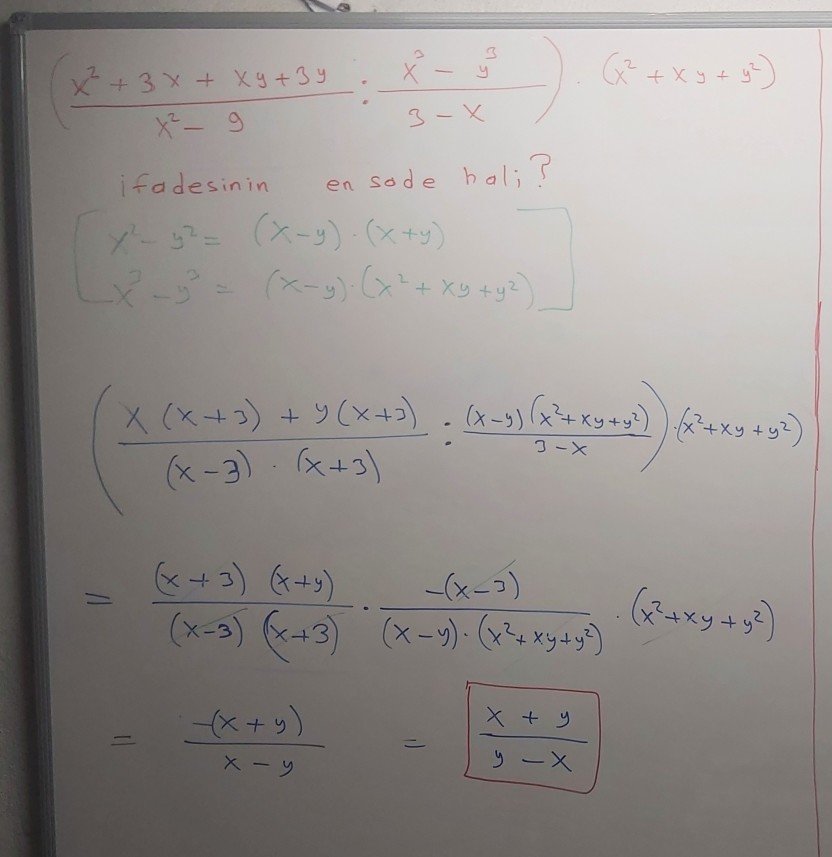 (x² + 3x + xy + 3y / x² - 9 : x³ - y³ / 3 - x) · (x² + xy + y²)
ifadesinin en sade hali?
[x² - y² = (x-y) · (x+y)
x³ - y³ = (x-y) · (x² + xy + y²)]
(x (x+3) + y (x+3) / (x-3) · (x+3) : (x-y) (x²+xy+y²) / 3-x) · (x²+xy+y²)
= (x+3) (x+y) / (x-3) (x+3) · -(x-3) / (x-y) · (x²+xy+y²) · (x²+xy+y²)
= -(x+y) / x-y = x + y / y - x